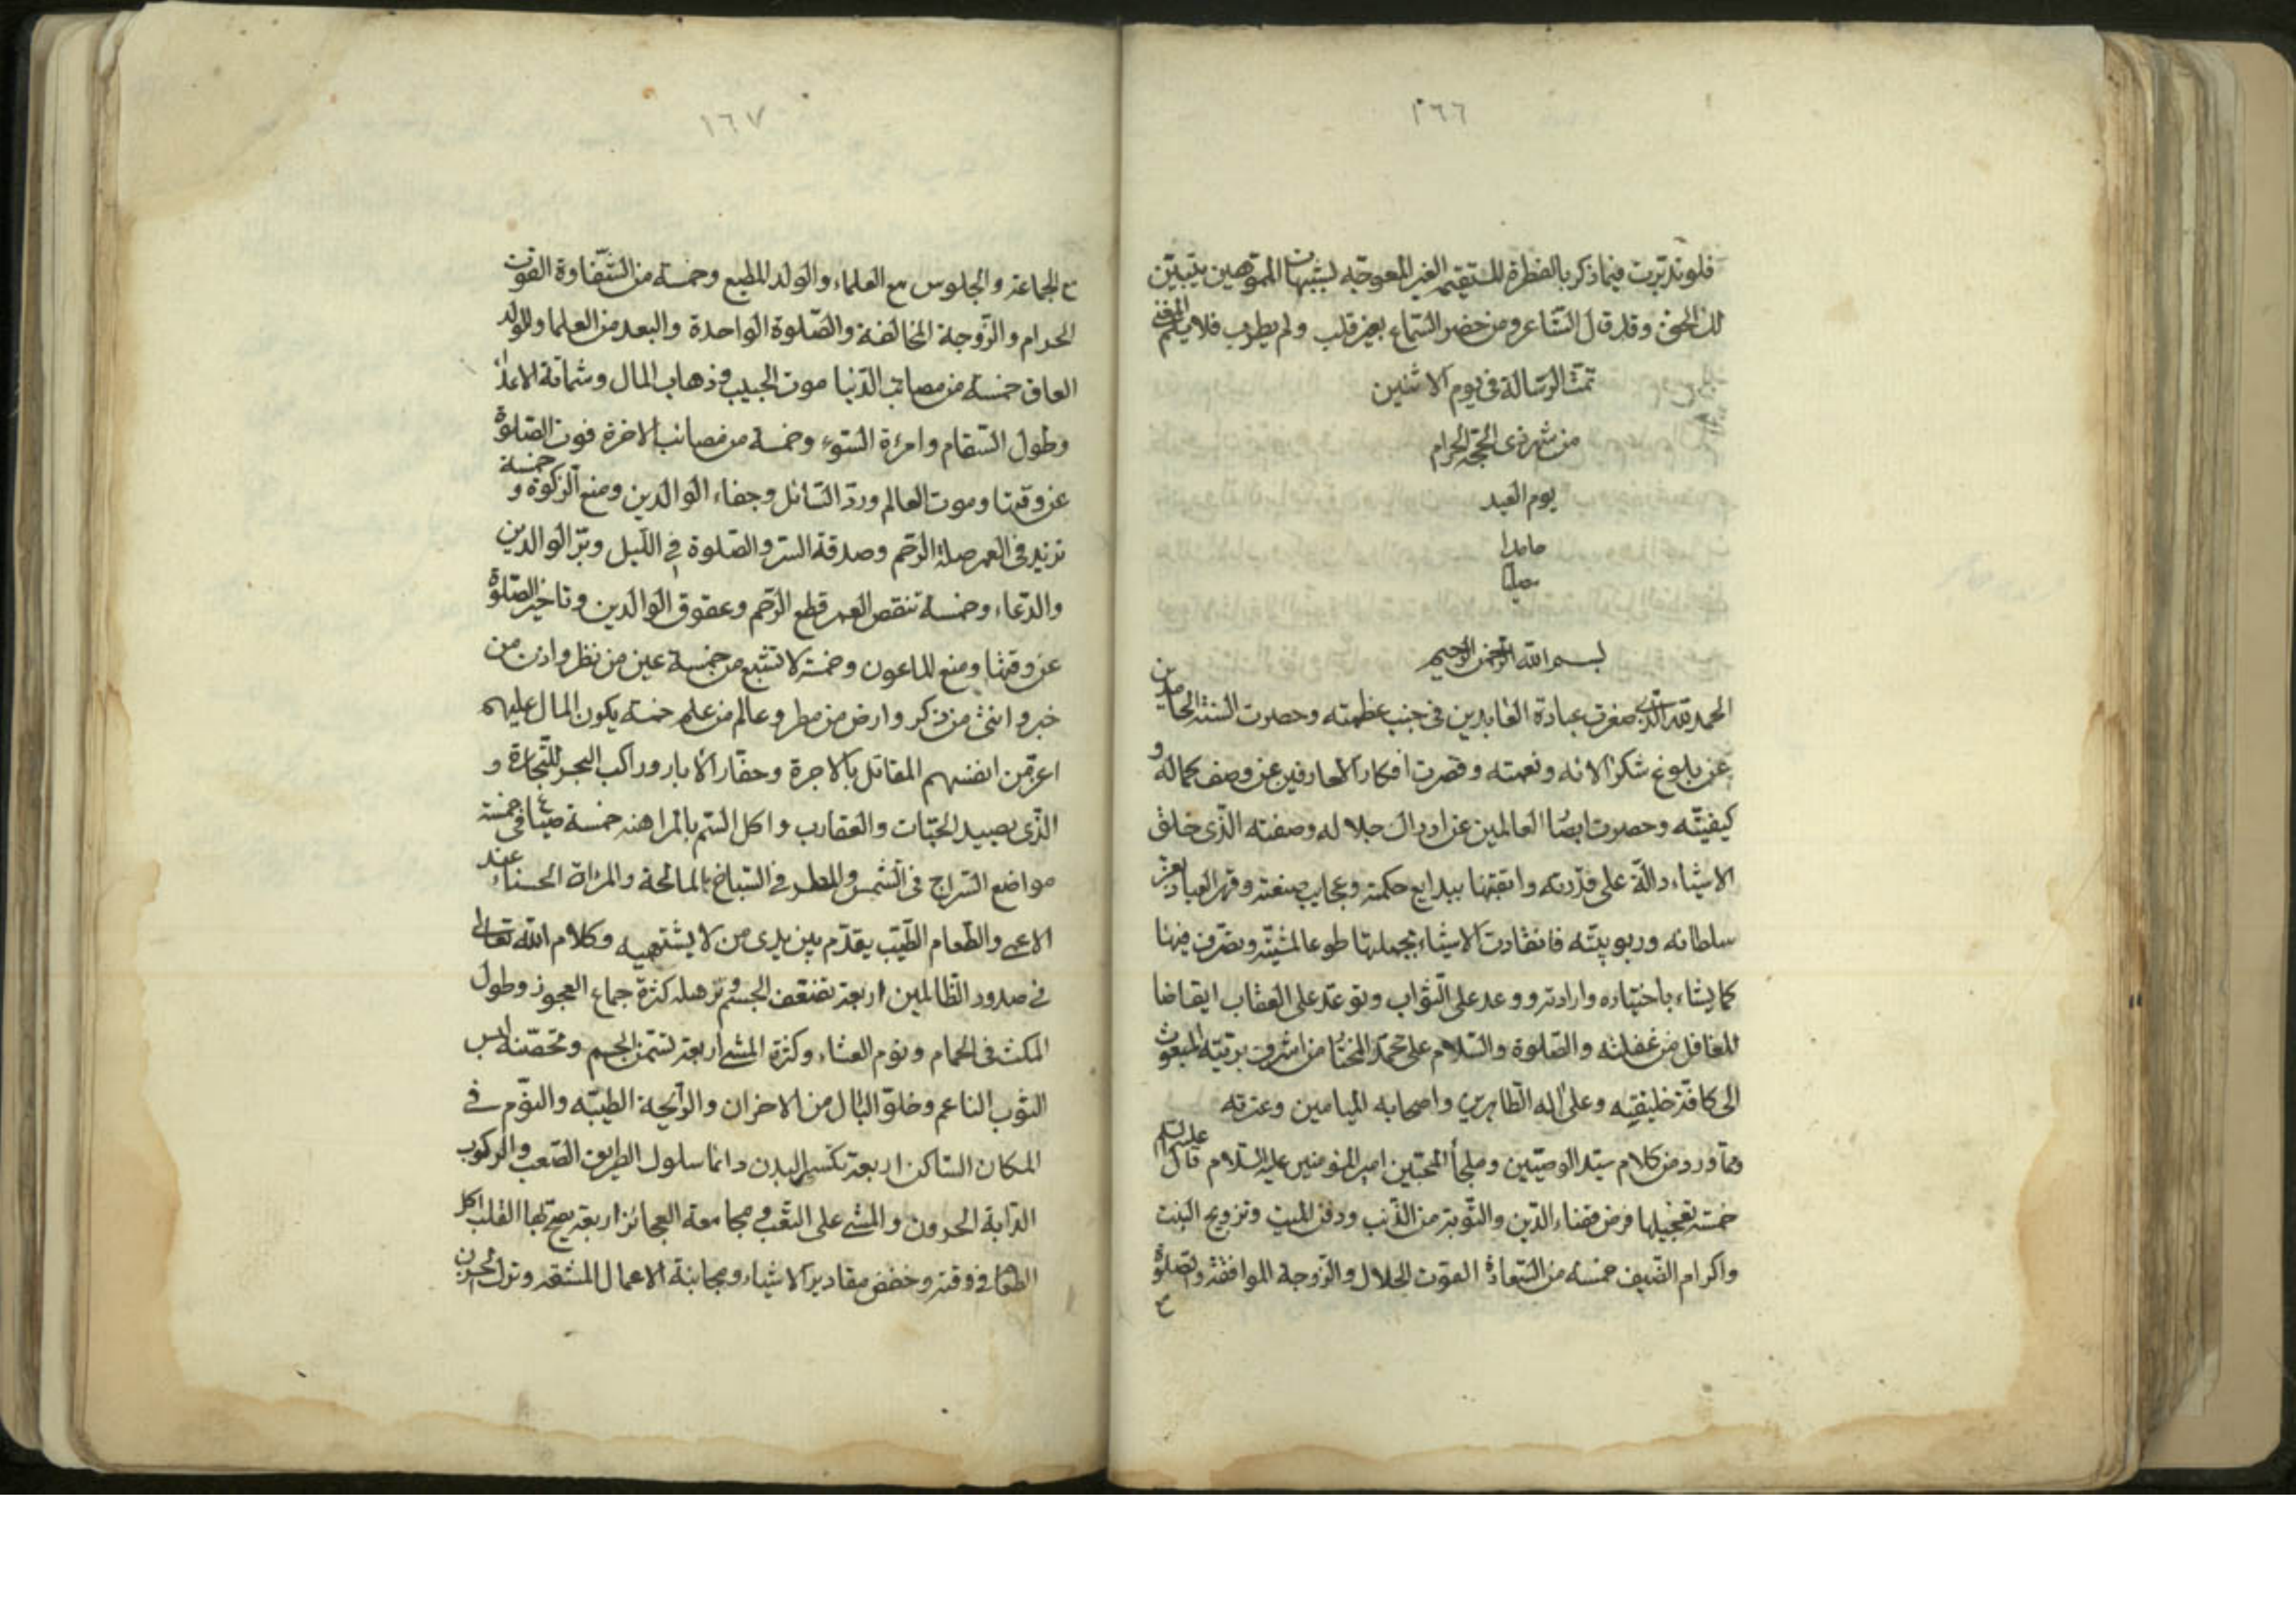 ١٦٦
فلو تدبرت فيما ذكر بالفطرة المستقيمة الغير المعوجه لشبهات المموهين يتبين
لك الحق وقد قال الشاعر ومن حضر السماع بغير قلب ولم يطرب فلا يلم المغني
تمت الرسالة في يوم الاثنين
من شهر ذي الحجة الحرام
يوم العيد
حامدا
مصليا
بسم الله الرحمن الرحيم
الحمد لله الذي صغرت عبادة العابدين في جنب عظمته وحصرت السنة الحامدين
عن بلوغ شكر الائه ونعمته وقصرت افكار العارفين عن وصف كماله و
كيفيته وحصرت ابصار العالمين عن ادراك جلاله وصفته الذي خلق
الاشياء دالة على قدرته واتقنها ببدايع حكمته وعجايب صنعته وقهر العباد بعز
سلطانه وربوبيته فانقادت الاشياء بجملتها طوعا لمشيته وتصرف فيها
كما يشاء باختياره وارادته ووعد على الثواب وتوعد على العقاب ايقاضا
للغافل من غفلته والصلوة والسلام على محمد المختار من اشرف بريته المبعوث
الى كافة خليقته وعلى اله الطاهرين واصحابه الميامين وعترته
ومما ورد من كلام سيد الوصيين وملجأ المحبين امير المؤمنين عليه السلام قال عليه السلم
خمسة تعجيلها فرض قضاء الدين والتوبة من الذنب ودفن الميت وتزويج البنت
واكرام الضيف خمسة من السعادة القوت الحلال والزوجة الموافقة والصلوة
مع
١٦٧
مع الجماعة والجلوس مع العلماء والولد المطيع وخمسة من الشقاوة القوت
الحرام والزوجة المخالفة والصلوة الواحدة والبعد من العلما والولد
العاق خمسة من مصائب الدنيا موت الحبيب وذهاب المال وشماتة الاعداء
وطول السقام وامرءة السوء وخمسة من مصائب الاخرة فوت الصلوة
عن وقتها وموت العالم ورد السائل وجفاء الوالدين ومنع الزكوة و خمسة
تزيد في العمر صلة الرحم وصدقة السر والصلوة في الليل وبر الوالدين
والدعاء وخمسة تنقص العمر قطع الرحم وعقوق الوالدين وتاخير الصلوة
عن وقتها ومنع الماعون وخمسة لا تشبع من خمسة عين من نظر واذن من
خبر وانثى من ذكر وارض من مطر وعالم من علم خمسة يكون المال عليهم
اعز من انفسهم المقاتل بالاجرة وحفار الابار وراكب البحر للتجارة و
الذي يصيد الحيات والعقارب واكل السم بالمراهنه خمسة ضياع في خمسة
مواضع السراج في الشمس والمطر في السباخ المالحة والمراة الحسناء عند
الاعمى والطعام الطيب يقدم بين يدي من لا يشتهيه وكلام الله تعالى
في صدور الظالمين اربعة تضعف الجسم وتهزله كثرة جماع العجوز وطول
المكث في الحمام ونوم العشاء وكثرة المشي اربعة تسمن الجسم وتخصبه لبس
الثوب الناعم وخلو البال من الاحزان والرائحة الطيبه والنوم في
المكان الساكن اربعة تكسر البدن دائما سلوك الطريق الصعب والركوب
الدابة الحرون والمشي على التعب ومجامعة العجائز اربعة يصح بها القلب اكل
الطعام في وقته وخفض مقادير الاشياء ومجانبة الاعمال المشقة وترك الحزن